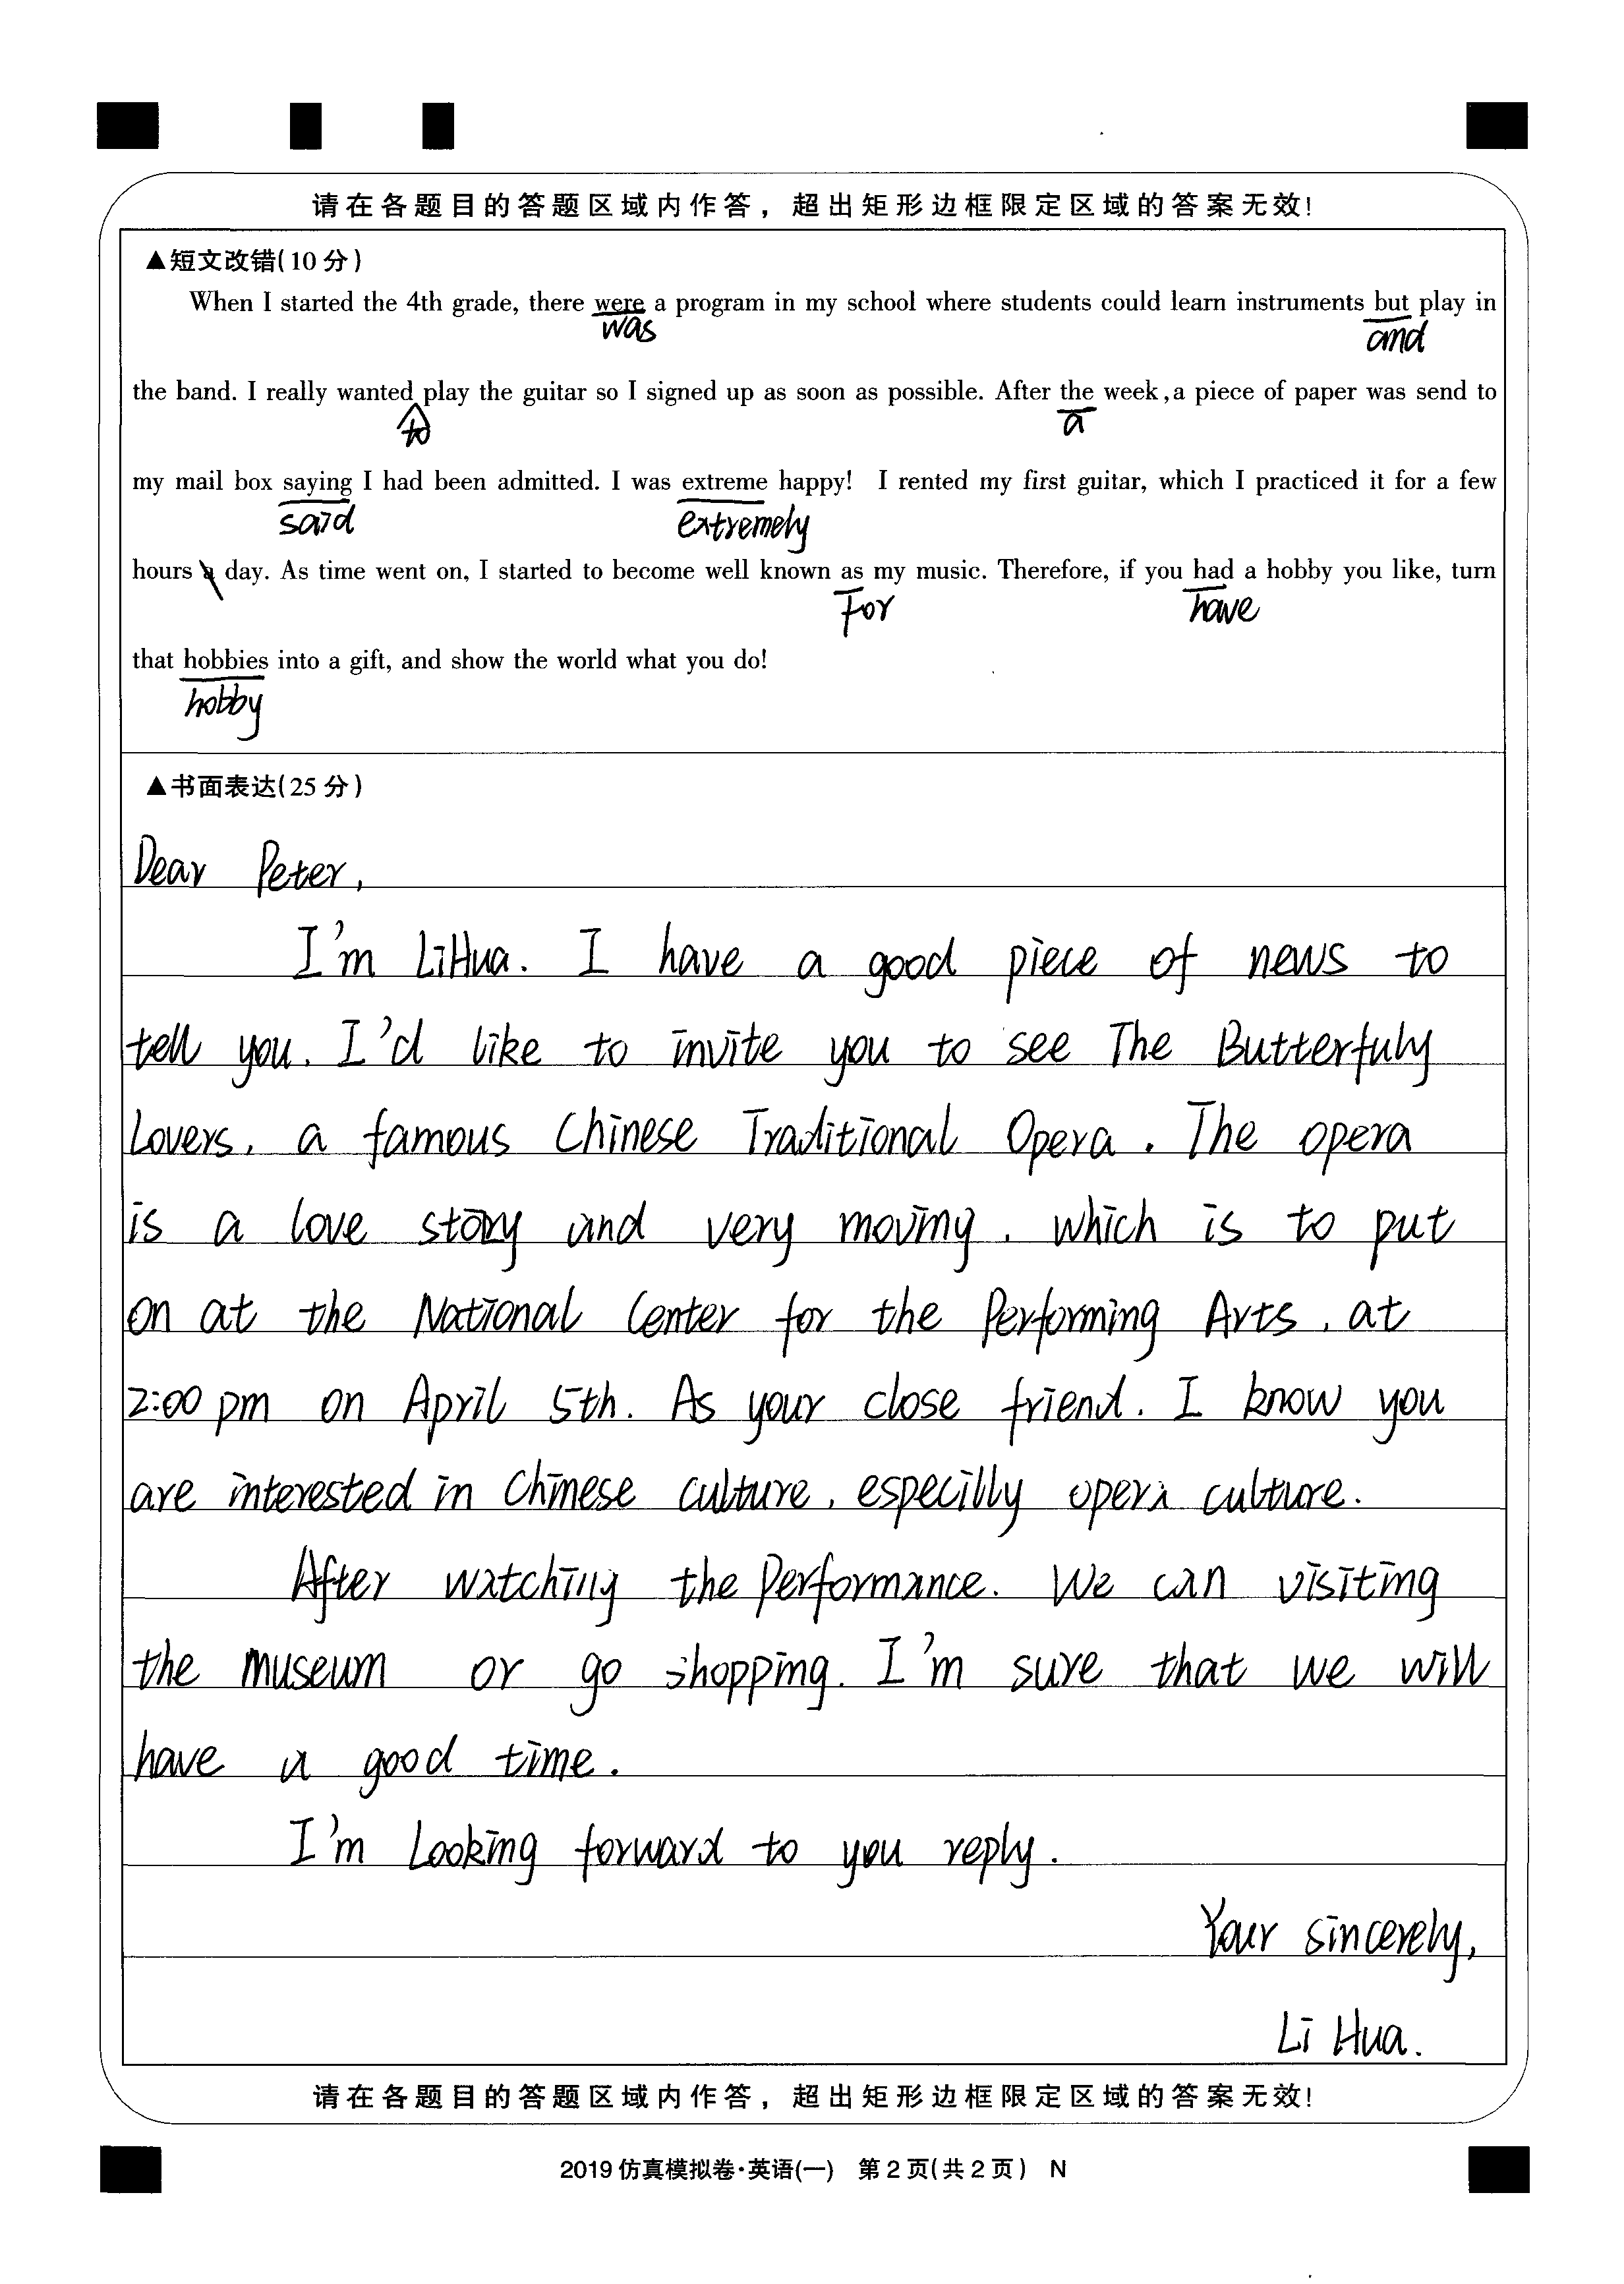 请在各题目的答题区域内作答，超出矩形边框限定区域的答案无效！
▲短文改错(10分)
When I started the 4th grade, there were a program in my school where students could learn instruments but play in
was and
the band. I really wanted play the guitar so I signed up as soon as possible. After the week,a piece of paper was send to
to a
my mail box saying I had been admitted. I was extreme happy! I rented my first guitar, which I practiced it for a few
said extremely
hours a day. As time went on, I started to become well known as my music. Therefore, if you had a hobby you like, turn
For have
that hobbies into a gift, and show the world what you do!
hobby
▲书面表达(25分)
Dear Peter,
I'm LiHua. I have a good piece of news to
tell you. I'd like to invite you to see The Butterfuly
Lovers, a famous Chinese Traditional Opera. The opera
is a love story and very moving, which is to put
on at the National Center for the Performing Arts, at
2:00 pm on April 5th. As your close friend. I know you
are interested in Chinese culture, especilly opera culture.
After watching the Performance. We can visiting
the museum or go shopping. I'm sure that we will
have a good time.
I'm Looking forward to you reply.
Your sincerely,
Li Hua.
请在各题目的答题区域内作答，超出矩形边框限定区域的答案无效！
2019仿真模拟卷·英语(一) 第2页(共2页) N